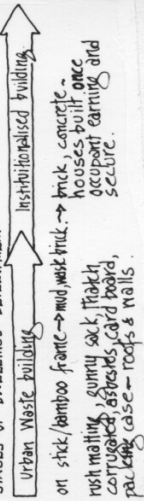 Urban Waste building
Institutionalised building.
on stick/bamboo frame → mud, wask brick. → brick, concrete -
rush matting, gunny sack, thatch
corrugated, asbestos, card board,
packing case - roofs & walls.
houses built once
occupant earning and
secure.